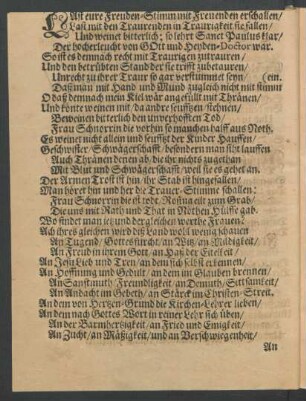 LAst eure Freuden-Stimm mit Freuenden erschallen/
Last mit den Traurenden in Traurigkeit sie fallen/
Und weinet bitterlich; so lehrt Sanct Paulus klar/
Der hocherleucht von GOtt und Heyden-Doctor war.
So ist es demnach recht mit Traurigen zutrauren/
Und den betrübten Stand der sie trifft zubetauren/
Unrecht zu ihrer Traur so gar verstummet seyn/
Daß man mit Hand und Mund zugleich nicht mit stimmt (ein.
O daß demnach mein Kiel wär angefüllt mit Thränen/
Und könte weinen mit/ da andre seufftzen/
Beweinen bitterlich den unverhofften Tod/
Frau Schnorrin die vorhin so manchen halff aus Noth.
Es weinet nicht allein und seufftzt der Kinder Hauffen/
Geschwister/ Schwägerschafft/ besondern man sihet lauffen
Auch Thränen denen ab/ die ihr nichts zugethan
Mit Blut und Schwägerschafft/ weil sie es gehet an.
Der Armen Trost ist hin/ ihr Stab ist hingefallen/
Man höret hin und her die Trauer-Stimme schallen:
Frau Schnorrin die ist todt, Rosina eilt zum Grab/
Die uns mit Rath und That in Nöthen Hülffe gab.
Wo findet man jetzund dergleichen werthe Frauen?
Ach ihres gleichen wird diß Land wohl wenig schauen
An Tugend/ Gottesfurcht/ an Witz/ an Mildigkeit/
An Freud in ihrem Gott/ an Haß der Eitelkeit/
An JEsu Lieb und Treu/ an dem sich selbst erkennen/
An Hoffnung und Gedult/ an dem im Glauben brennen/
An Sanfftmuth/ Freundligkeit/ an Demuth/ Sittsamkeit/
An Andacht im Gebeth/ an Stärck im Christen-Streit.
An dem von Hertzen-Grund die Kirchen-Lehrer lieben/
An dem nach Gottes Wort in reiner Lehr sich üben/
An der Barmhertzigkeit/ an Fried und Einigkeit/
An Zucht/ an Mäßigkeit/ und an Verschwiegenheit/
An